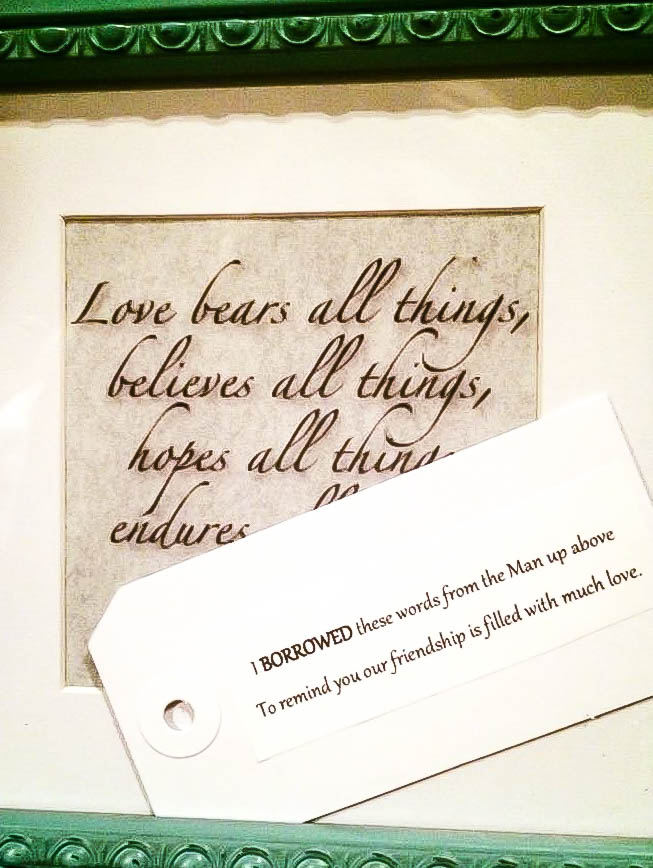 Love bears all things,
believes all things,
hopes all
endures
I BORROWED these words from the Man up above
To remind you our friendship is filled with much love.